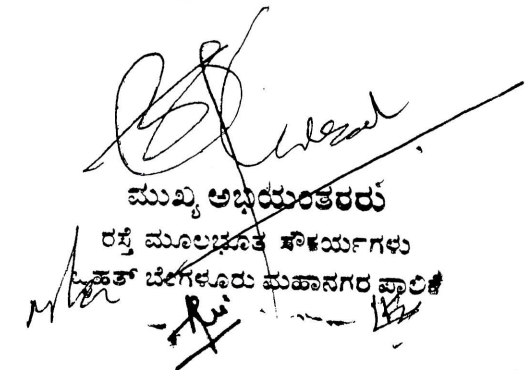 ಮುಖ್ಯ ಅಭಿಯಂತರರು
ರಸ್ತೆ ಮೂಲಭೂತ ಸೌಕರ್ಯಗಳು
ಬೃಹತ್ ಬೆಂಗಳೂರು ಮಹಾನಗರ ಪಾಲಿಕೆ